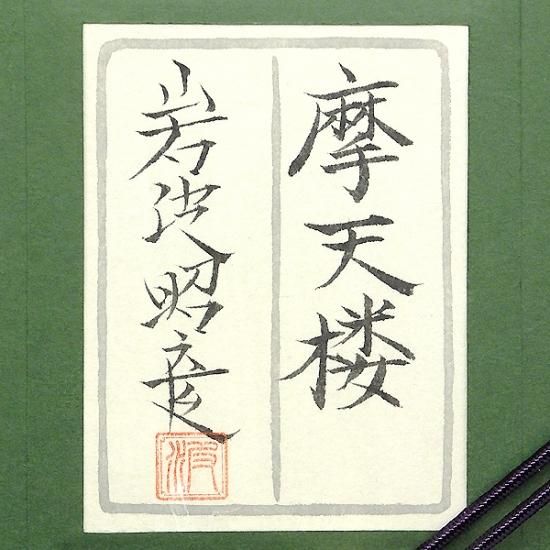 摩天楼
岩波昭彦
波